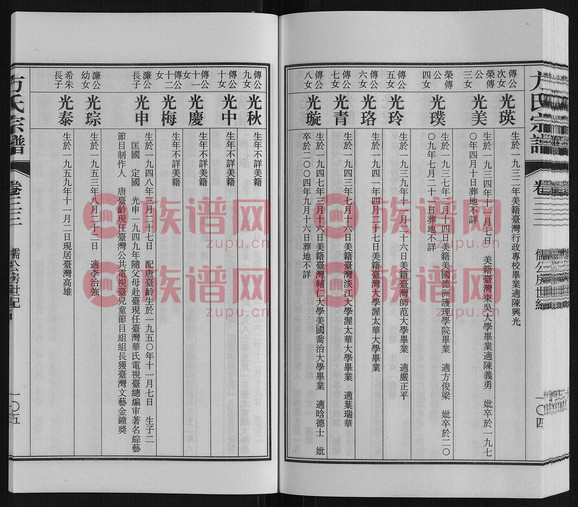 方氏宗譜
卷三三
儒公房世紀
一〇四
傳公次女
光瑛
生於一九三二年美籍臺灣行政專校畢業適陳興光
傳公三女
光美
生於一九三四年十一月十七日 美籍臺灣東吳大學畢業適陳義勇 妣卒於一九七
〇年四月十日葬地不詳
榮傳公四女
光璞
生於一九三七年十一月十四日美籍美國德洲護理學院畢業 適方俊梁 妣卒於二〇
〇九年七月二十一日葬地不詳
傳公五女
光玲
傳公六女
光珞
傳公七女
光青
傳公八女
光璇
生於一九四七年三月六日美籍臺灣輔仁大學美國喬治大學畢業 適晗德士 妣
卒於二〇〇四年九月十六日葬地不詳
傳公九女
光秋
生年不詳美籍
傳公十女
光中
生年不詳美籍
傳公十一女
光慶
生年不詳美籍
傳公十二女
光梅
生年不詳美籍
濂公長子
光申
生於一九四八年三月二十七日 配唐臺齡生於一九五〇年十一月七日 生子二
匡國 定國 光申一九四九年隨父母赴臺現任臺灣華氏電視臺總編審著名綜藝
節目制作人 唐臺齡現任臺灣公共電視臺兒童節目組組長獲臺灣文藝金鐘獎
濂公幼女
光琮
生於一九五三年八月二十二日 適李治強
希朱長子
光泰
生於一九五九年十一月二日現居臺灣高雄
方氏宗譜
卷三三
儒公房世紀
一〇五
族谱网
zupu.cn
族谱网
zupu.cn